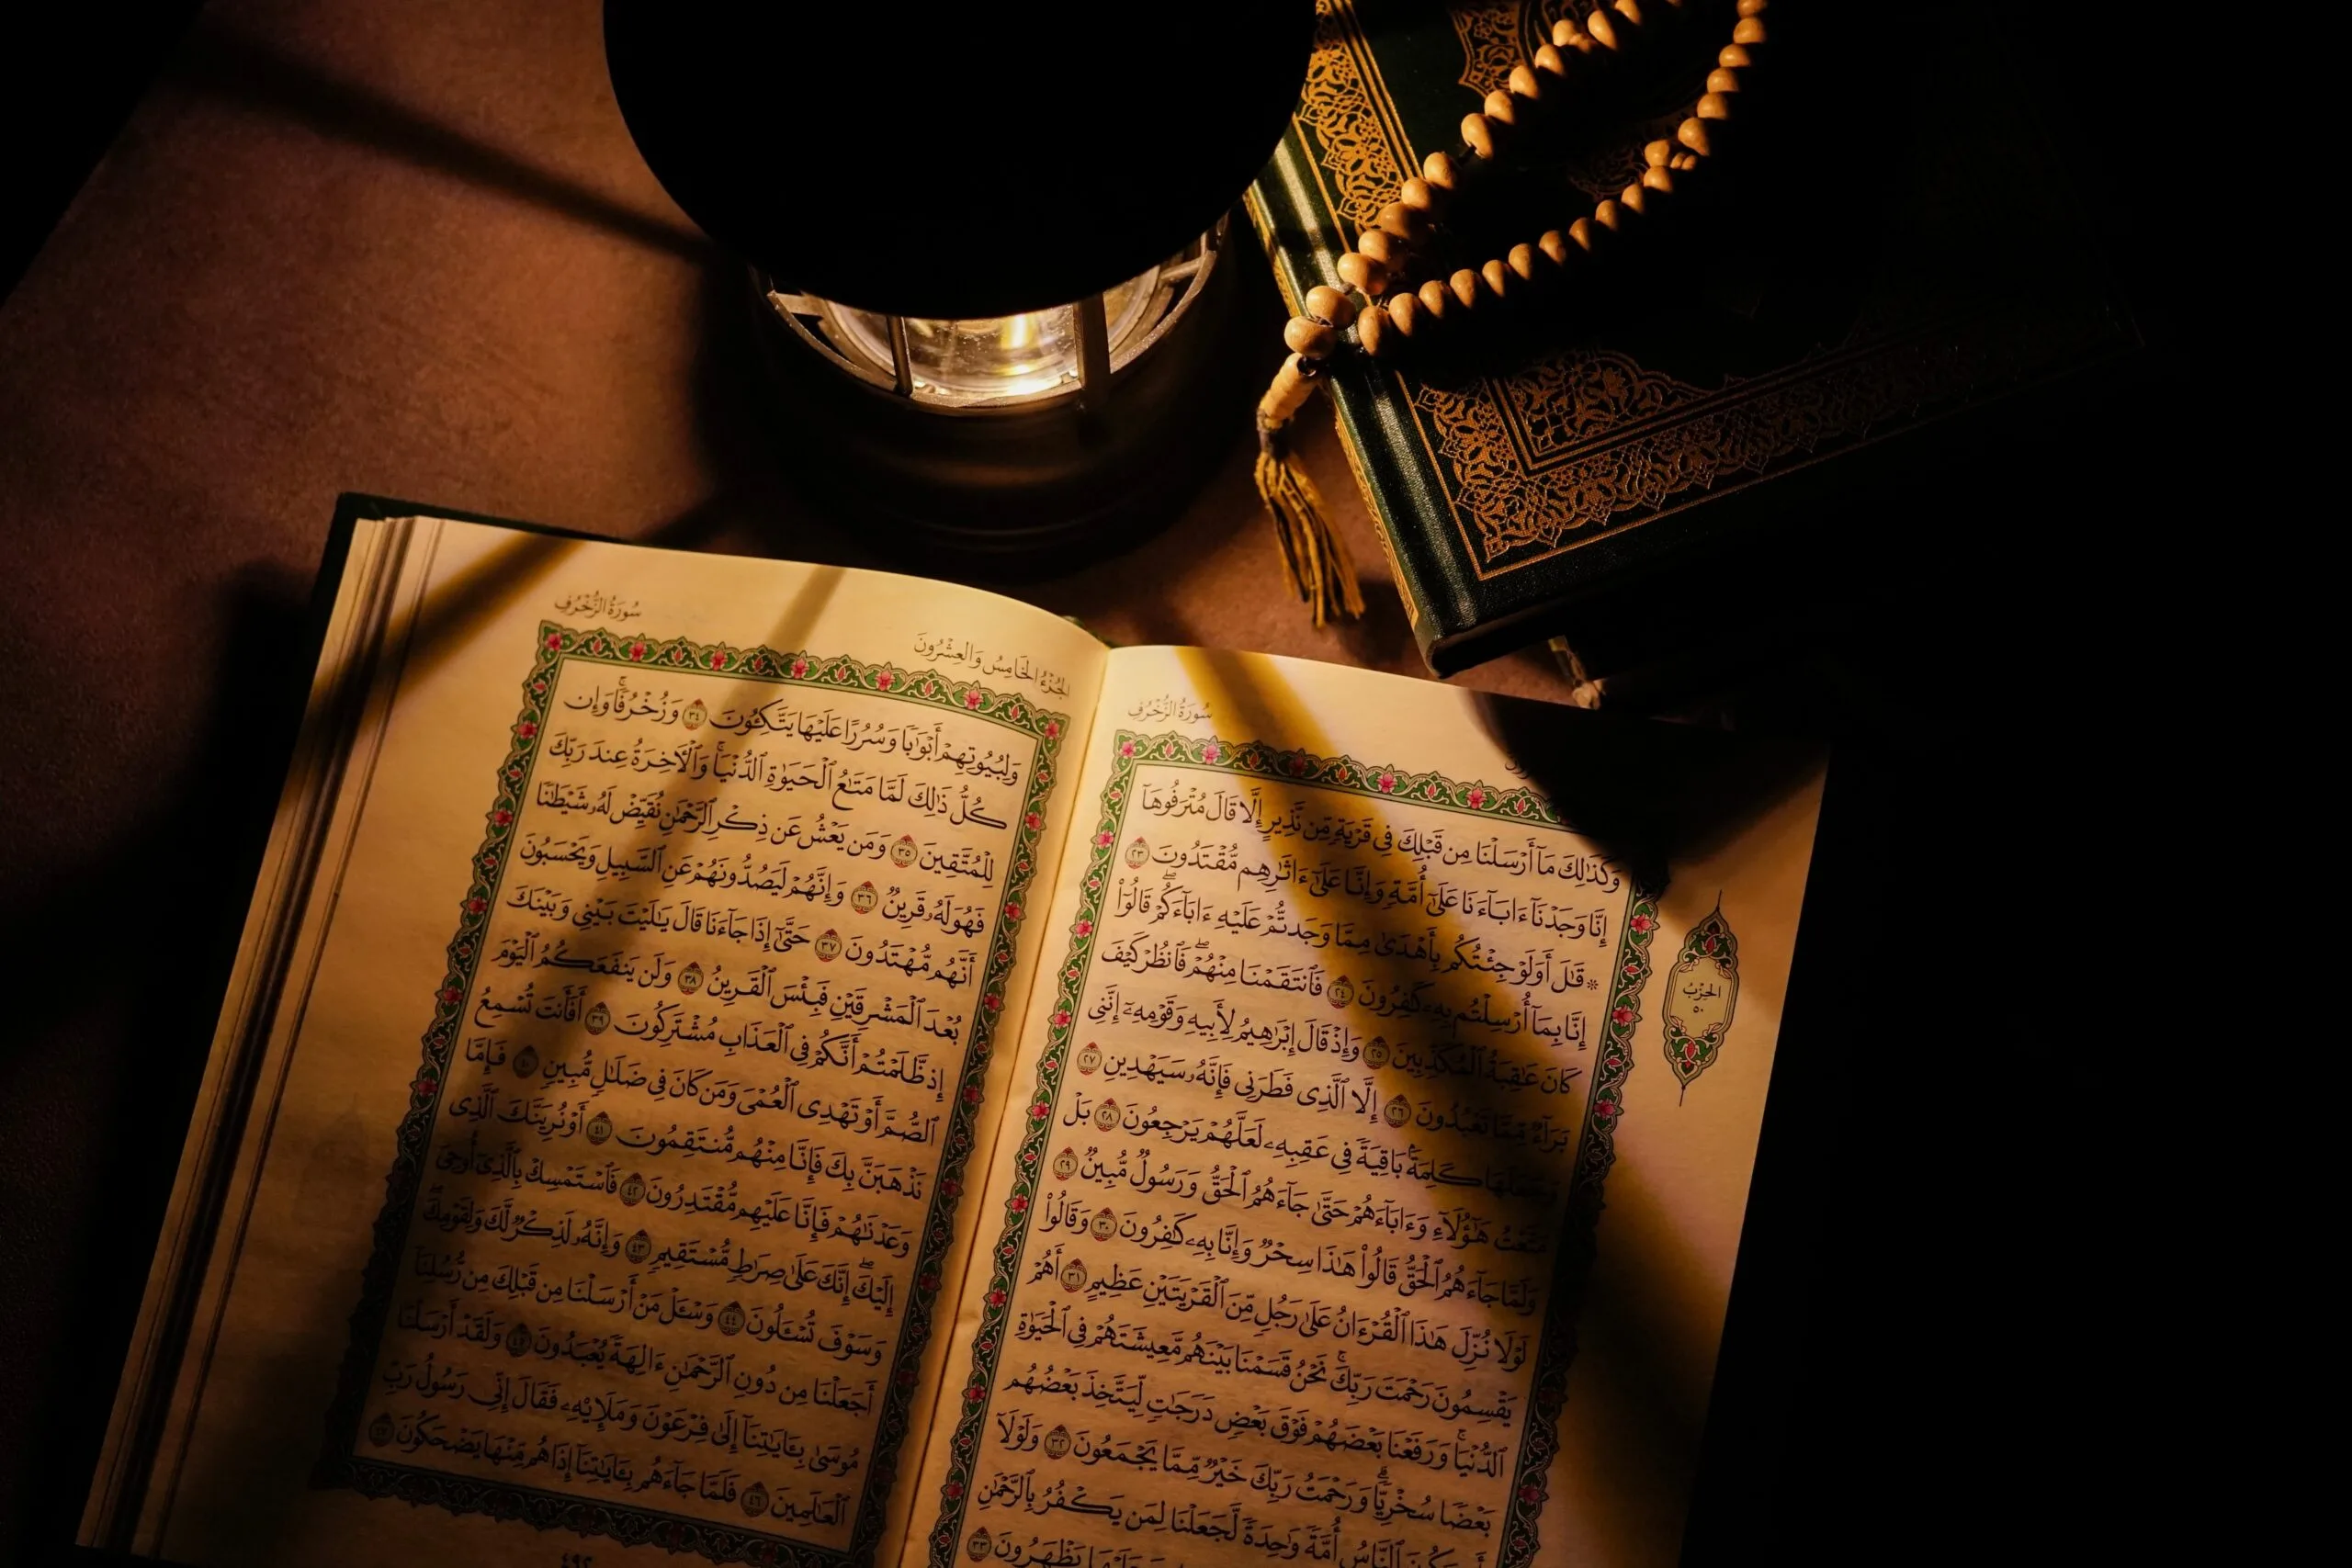 سُورَةُ الزُّخْرُفِ
وَكَذَٰلِكَ مَآ أَرْسَلْنَا مِن قَبْلِكَ فِى قَرْيَةٍ مِّن نَّذِيرٍ إِلَّا قَالَ مُتْرَفُوهَآ
إِنَّا وَجَدْنَآ ءَابَآءَنَا عَلَىٰٓ أُمَّةٍ وَإِنَّا عَلَىٰٓ ءَاثَٰرِهِم مُّقْتَدُونَ ٢٣
* قَٰلَ أَوَلَوْ جِئْتُكُم بِأَهْدَىٰ مِمَّا وَجَدتُّمْ عَلَيْهِ ءَابَآءَكُمْ ۖ قَالُوٓا۟
إِنَّا بِمَآ أُرْسِلْتُم بِهِۦ كَٰفِرُونَ ٢٤ فَٱنتَقَمْنَا مِنْهُمْ ۖ فَٱنظُرْ كَيْفَ
كَانَ عَٰقِبَةُ ٱلْمُكَذِّبِينَ ٢٥ وَإِذْ قَالَ إِبْرَٰهِيمُ لِأَبِيهِ وَقَوْمِهِۦٓ إِنَّنِى
بَرَآءٌ مِّمَّا تَعْبُدُونَ ٢٦ إِلَّا ٱلَّذِى فَطَرَنِى فَإِنَّهُۥ سَيَهْدِينِ ٢٧
وَجَعَلَهَا كَلِمَةًۢ بَاقِيَةً فِى عَقِبِهِۦ لَعَلَّهُمْ يَرْجِعُونَ ٢٨ بَلْ
مَتَّعْتُ هَٰٓؤُلَآءِ وَءَابَآءَهُمْ حَتَّىٰ جَآءَهُمُ ٱلْحَقُّ وَرَسُولٌ مُّبِينٌ ٢٩
وَلَمَّا جَآءَهُمُ ٱلْحَقُّ قَالُوا۟ هَٰذَا سِحْرٌ وَإِنَّا بِهِۦ كَٰفِرُونَ ٣٠ وَقَالُوا۟
لَوْلَا نُزِّلَ هَٰذَا ٱلْقُرْءَانُ عَلَىٰ رَجُلٍ مِّنَ ٱلْقَرْيَتَيْنِ عَظِيمٍ ٣١ أَهُمْ
يَقْسِمُونَ رَحْمَتَ رَبِّكَ ۚ نَحْنُ قَسَمْنَا بَيْنَهُم مَّعِيشَتَهُمْ فِى ٱلْحَيَوٰةِ
ٱلدُّنْيَا ۚ وَرَفَعْنَا بَعْضَهُمْ فَوْقَ بَعْضٍ دَرَجَٰتٍ لِّيَتَّخِذَ بَعْضُهُم
بَعْضًا سُخْرِيًّا ۗ وَرَحْمَتُ رَبِّكَ خَيْرٌ مِّمَّا يَجْمَعُونَ ٣٢ وَلَوْلَآ
أَن يَكُونَ ٱلنَّاسُ أُمَّةً وَٰحِدَةً لَّجَعَلْنَا لِمَن يَكْفُرُ بِٱلرَّحْمَٰنِ
عَلَيْهَا يَظْهَرُونَ ٣٣
الحِزْبُ
٥٠
سُورَةُ الزُّخْرُفِ
الجُزْءُ الخَامِسُ وَالعِشْرُونَ
وَلِبُيُوتِهِمْ أَبْوَٰبًا وَسُرُرًا عَلَيْهَا يَتَّكِـُٔونَ ٣٤ وَزُخْرُفًا ۚ وَإِن
كُلُّ ذَٰلِكَ لَمَّا مَتَٰعُ ٱلْحَيَوٰةِ ٱلدُّنْيَا ۚ وَٱلْـَٔاخِرَةُ عِندَ رَبِّكَ
لِلْمُتَّقِينَ ٣٥ وَمَن يَعْشُ عَن ذِكْرِ ٱلرَّحْمَٰنِ نُقَيِّضْ لَهُۥ شَيْطَٰنًا
فَهُوَ لَهُۥ قَرِينٌ ٣٦ وَإِنَّهُمْ لَيَصُدُّونَهُمْ عَنِ ٱلسَّبِيلِ وَيَحْسَبُونَ
أَنَّهُم مُّهْتَدُونَ ٣٧ حَتَّىٰٓ إِذَا جَآءَنَا قَالَ يَٰلَيْتَ بَيْنِى وَبَيْنَكَ
بُعْدَ ٱلْمَشْرِقَيْنِ فَبِئْسَ ٱلْقَرِينُ ٣٨ وَلَن يَنفَعَكُمُ ٱلْيَوْمَ
إِذ ظَّلَمْتُمْ أَنَّكُمْ فِى ٱلْعَذَابِ مُشْتَرِكُونَ ٣٩ أَفَأَنتَ تُسْمِعُ
ٱلصُّمَّ أَوْ تَهْدِى ٱلْعُمْىَ وَمَن كَانَ فِى ضَلَٰلٍ مُّبِينٍ ٤٠ فَإِمَّا
نَذْهَبَنَّ بِكَ فَإِنَّا مِنْهُم مُّنتَقِمُونَ ٤١ أَوْ نُرِيَنَّكَ ٱلَّذِى
وَعَدْنَٰهُمْ فَإِنَّا عَلَيْهِم مُّقْتَدِرُونَ ٤٢ فَٱسْتَمْسِكْ بِٱلَّذِىٓ أُوحِىَ
إِلَيْكَ ۖ إِنَّكَ عَلَىٰ صِرَٰطٍ مُّسْتَقِيمٍ ٤٣ وَإِنَّهُۥ لَذِكْرٌ لَّكَ وَلِقَوْمِكَ ۖ
وَسَوْفَ تُسْـَٔلُونَ ٤٤ وَسْـَٔلْ مَنْ أَرْسَلْنَا مِن قَبْلِكَ مِن رُّسُلِنَآ
أَجَعَلْنَا مِن دُونِ ٱلرَّحْمَٰنِ ءَالِهَةً يُعْبَدُونَ ٤٥ وَلَقَدْ أَرْسَلْنَا
مُوسَىٰ بِـَٔايَٰتِنَآ إِلَىٰ فِرْعَوْنَ وَمَلَإِيْهِۦ فَقَالَ إِنِّى رَسُولُ رَبِّ
ٱلْعَٰلَمِينَ ٤٦ فَلَمَّا جَآءَهُم بِـَٔايَٰتِنَآ إِذَا هُم مِّنْهَا يَضْحَكُونَ ٤٧
٤٩٢